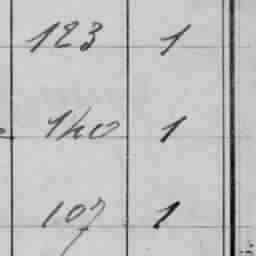 123 1
140 1
107 1